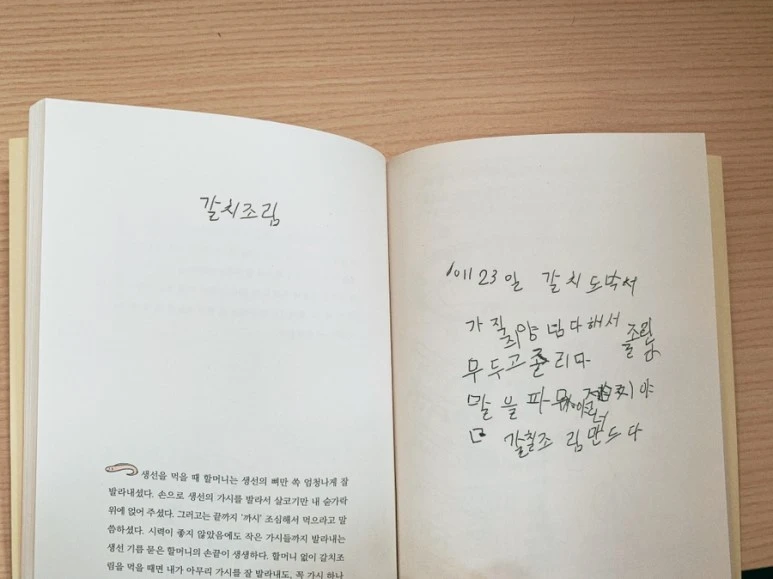 갈치조림
생선을 먹을 때 할머니는 생선의 뼈만 쏙 엄청나게 잘
발라내셨다. 손으로 생선의 가시를 발라서 살코기만 내 숟가락
위에 얹어 주셨다. 그러고는 끝까지 ‘까시’ 조심해서 먹으라고 말
씀하셨다. 시력이 좋지 않았음에도 작은 가시들까지 발라내는
생선 기름 묻은 할머니의 손끝이 생생하다. 할머니 없이 갈치조
림을 먹을 때면 내가 아무리 가시를 잘 발라내도, 꼭 가시 하나
23일 갈치 도막서
가직 양넘다해서
무두고 리다
말을파
갈칠조 림만드다